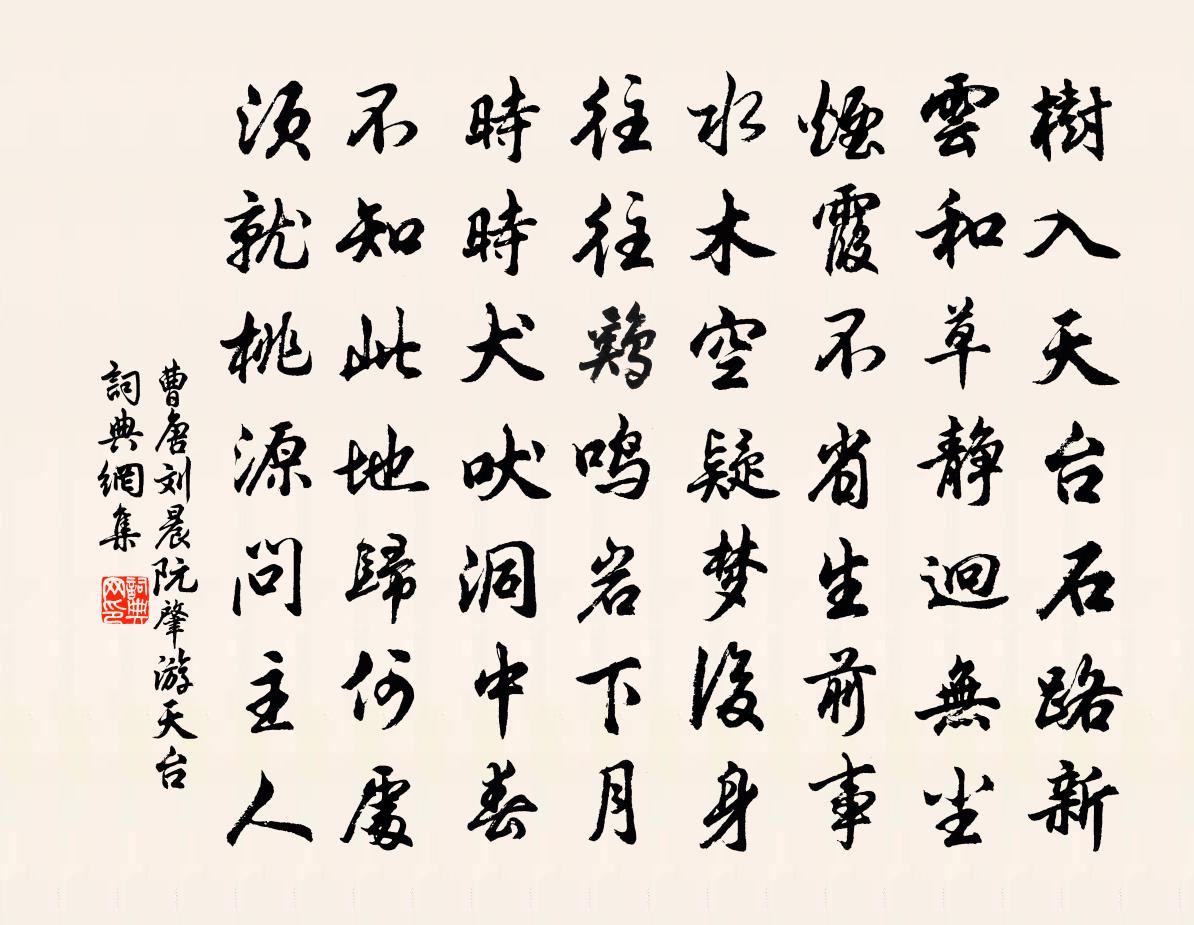 樹入天台石路新
雲和草静迥無尘
煙霞不省生前事
水木空疑梦後身
往往鷄鳴岩下月
時時犬吠洞中春
不知此地歸何處
须就桃源问主人
曹唐刘晨阮肇游天台
詞典網集
詞典网印